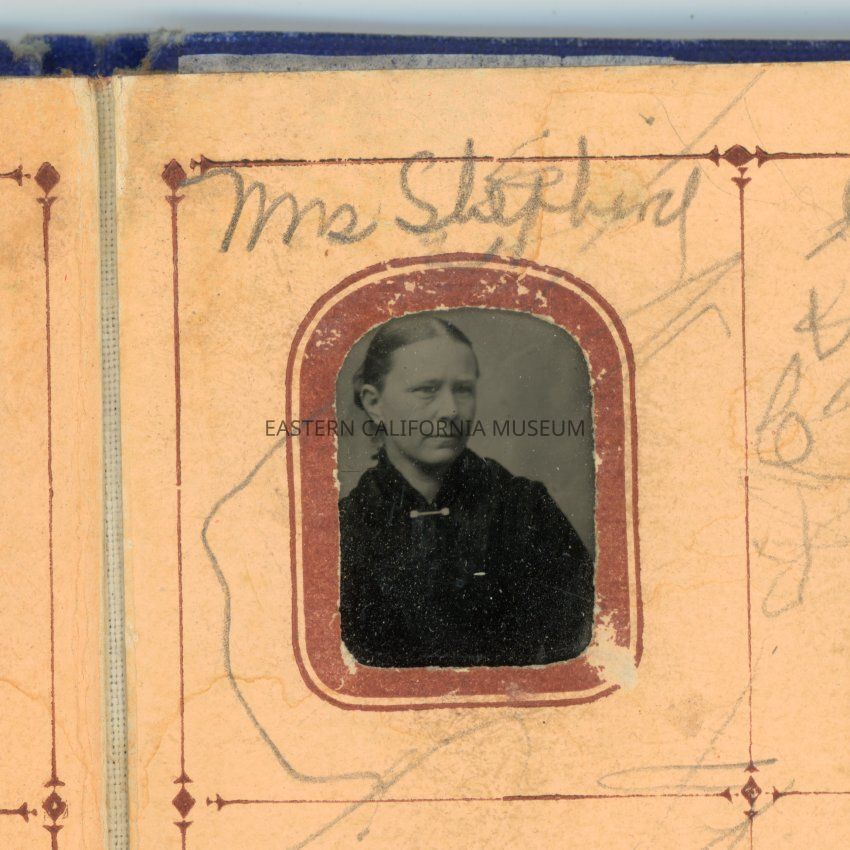 Mrs Shepherd
EASTERN CALIFORNIA MUSEUM